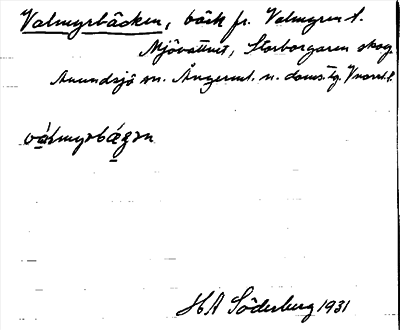 Valmyrbäcken, bäck fr. Valmyren t.
Mjövattnet, Storborgaren skog
Anundsjö sn. Ångerml. n. doms.
válmyrbägən
H A Söderberg 1931